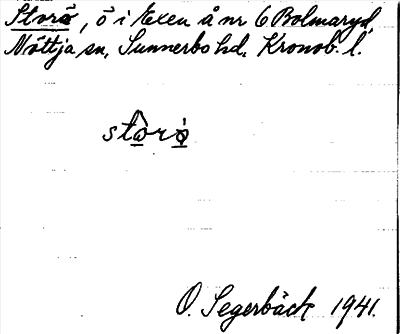 Storö, ö i Exen å nr 6 Bolmaryd,
Nöttja sn, Sunnerbo hd, Kronob. l.
stòrö́
O. Segerbäck 1941.